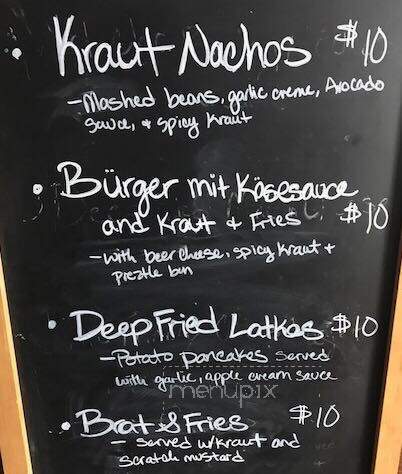 Kraut Nachos $10
- Mashed beans, garlic creme, Avocado
sauce, + spicy Kraut
Bürger mit Käsesauce
and Kraut & Fries $10
- with beer cheese, spicy Kraut +
Preztle bun
Deep Fried Latkas $10
- Potato pancakes served
with garlic, apple cream sauce
menupix
Brat & Fries $10
- served w/kraut and
scratch mustard